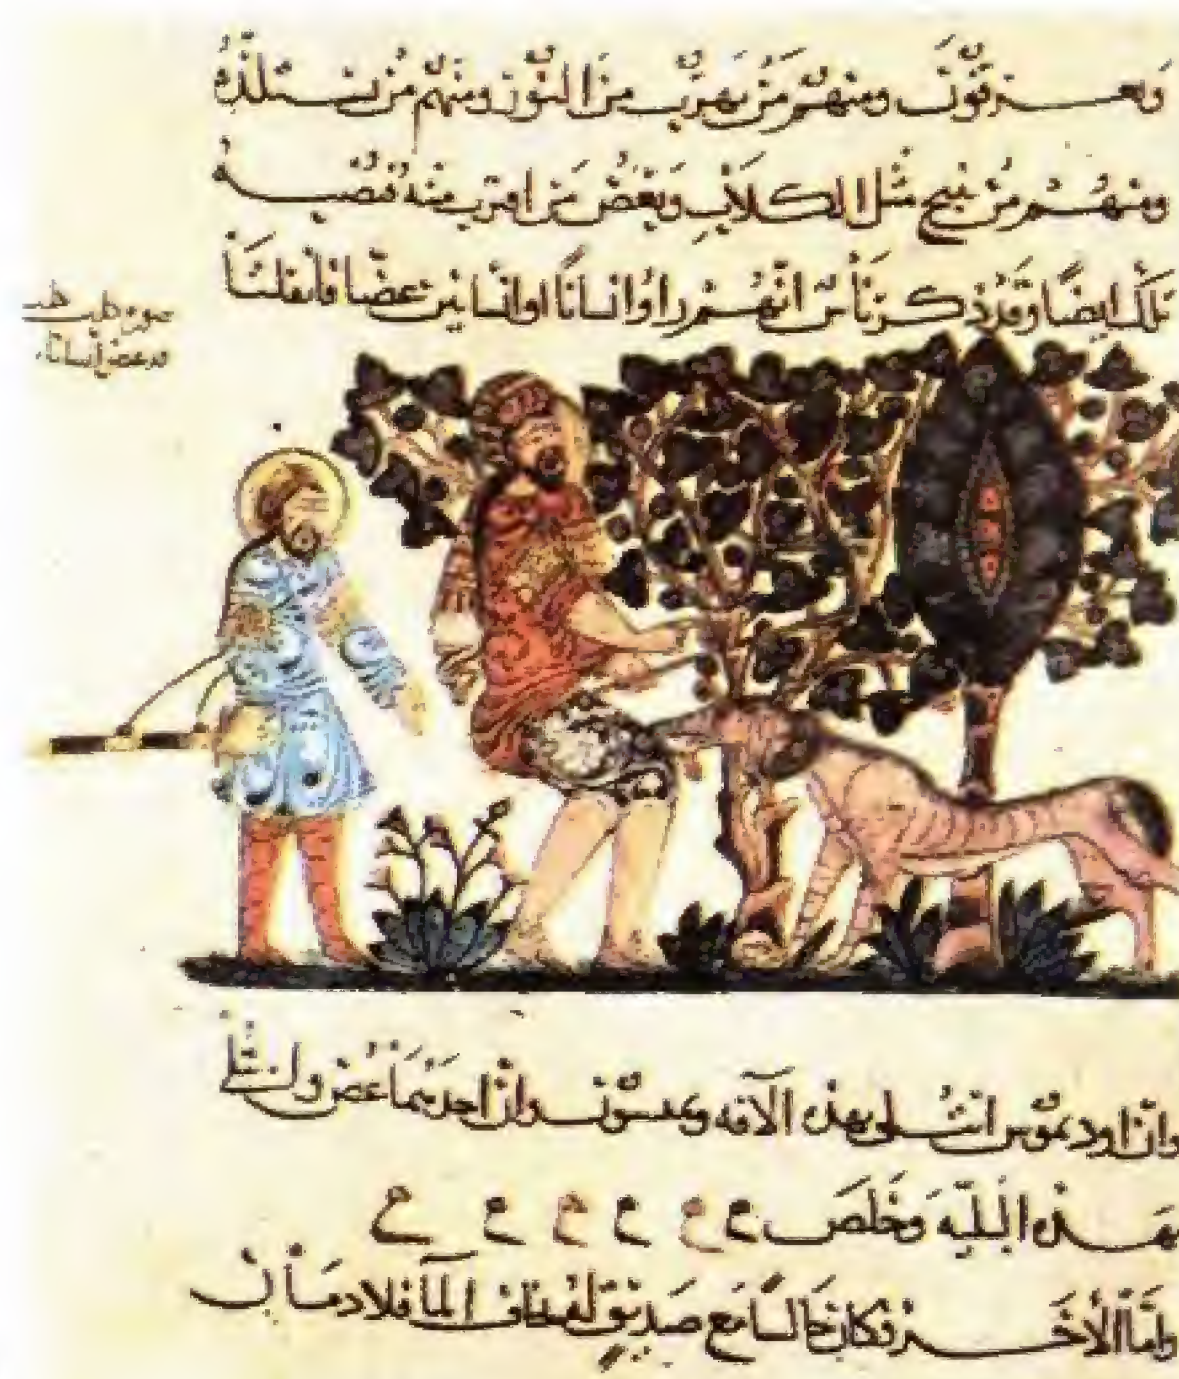 ويعـــرقون ومنهم من يهرب من النور ومنهم من يستلذه
ومنهم من ينبح مثل الكلاب وبعض من اقترب منه تصيبه
تلك ايضًا وقد ذكر ناس انهم راوا انسانًا او انسانين عضّا فانفلتا
صورة كلب كلب
قد عض انسانا
وان اوديموس ابتلى بهذه الآفة وان احدهما عض وابتلى
بهذه البليّة وخلص
وامّا الأخر فكان جالسًا مع صديق له يخاف الماء فلا دم